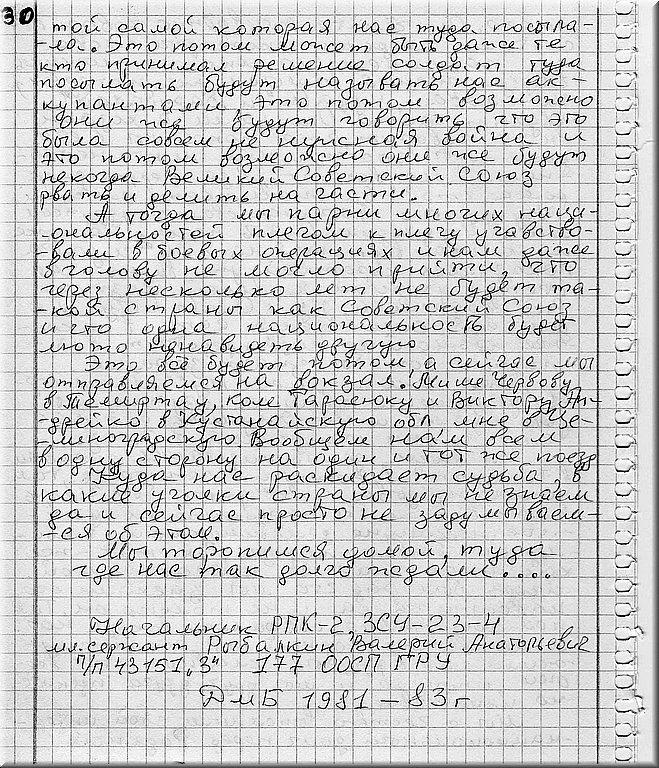 30
той самой которая нас туда посыла-
-ла. Это потом может быть даже те
кто принимал решение солдат туда
посылать будут называть нас ак-
купантами, это потом возможно
они же будут говорить что это
была совсем не нужная война и
это потом возможно они же будут
некогда Великий Советский Союз
рвать и делить на части.
А тогда мы парни многих наци-
-ональностей плечом к плечу учавство-
-вали в боевых операциях и нам даже
в голову не могло прийти, что
через несколько лет не будет та-
-кой страны как Советский Союз
и что одна национальность будет
люто ненавидеть другую
Это всё будет потом, а сейчас мы
отправляемся на вокзал. Мише Червову
в Темиртау, Коле Тарасюку и Виктору Ан-
-дрейко в Кустанайскую обл мне в Це-
-линоградскую Вообщем нам всем
в одну сторону на один и тот же поезд
Куда нас раскидает судьба, в
какие уголки страны мы не знаем
да и сейчас просто не задумываем-
-ся об этом.
Мы торопимся домой, туда
где нас так долго ждали....
Начальник РПК-2, ЗСУ-23-4
мл. сержант Рыбалкин Валерий Анаторьевич
П/п 43151 „З" 177 ООСП ГРУ
ДМБ 1981 – 83 г